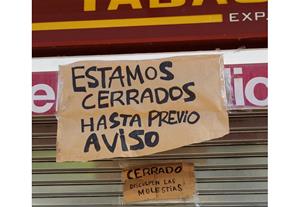 TABAC
EXP.
ESTAMOS
CERRADOS
HASTA PREVIO
AVISO
CERRADO
DISCULPEN LAS
MOLESTIAS